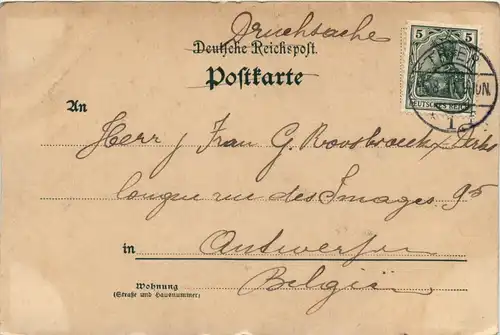 Druchsache
Deutsche Reichspost.
Postkarte
5 5
DEUTSCHES REICH
1
An
Herr / Frau G. Roosbroeck /
longue rue des Images. 95
in Antwerpen
Belgiën
Wohnung
(Straße und Hausnummer)